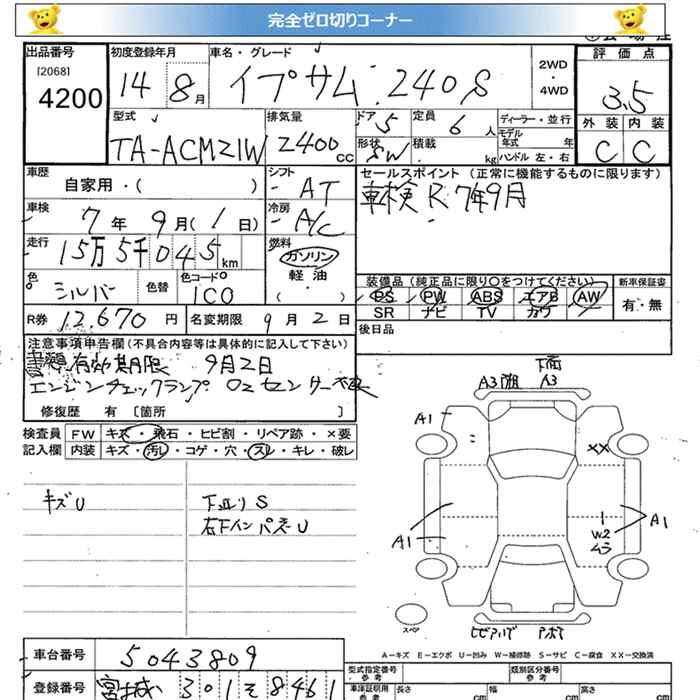 完全ゼロ切りコーナー
出品番号 初度登録年月 車名・グレード 評価点
[2068] 4200 14 8月 イプサム 240S 2WD・4WD 3.5
型式 排気量 ドア 5 定員 6人 ディーラー・並行 外装 内装
TA-ACM21W 2400cc 形状 SW 積載 kg モデル年式 年 ハンドル 左・右 C C
車歴 シフト セールスポイント(正常に機能するものに限ります)
自家用・( ) AT 車検 R7年9月
車検 7年9月(1日) 冷房 A/C
走行 15万5千045km 燃料 ガソリン
軽油 ( )
色 シルバー 色替 色コード 1C0
装備品(純正品に限り○をつけてください) 新車保証書
PS PW ABS エアB AW 有・無
SR ナビ TV カワ
R券 12670円 名変期限 9月2日 後日品
注意事項申告欄(不具合内容等は具体的に記入して下さい)
有効期限 9月2日
エンジンチェックランプ O2センサー
修復歴 有 〔箇所 〕
検査員 FW キズ・飛石・ヒビ割・リペア跡・×要
記入欄 内装 キズ・汚レ・コゲ・穴・スレ・キレ・破レ
下面
A3 A3
A1
XX
キズU 下廻りS
右下インパネU
A1
W2
ムラ
A1
スペア
A-キズ E-エクボ U-凹み W-補修跡 S-サビ C-腐食 XX-交換済
車台番号 5043809
型式指定番号 参考 類別区分番号 参考
登録番号 宮城 301 そ 8461
車庫証明用 参考 長さ cm 幅 cm 高さ cm